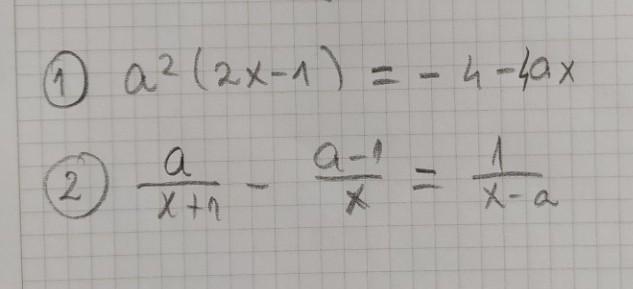 ① a²(2x-1) = -4-4ax
② a/(x+1) - (a-1)/x = 1/(x-a)